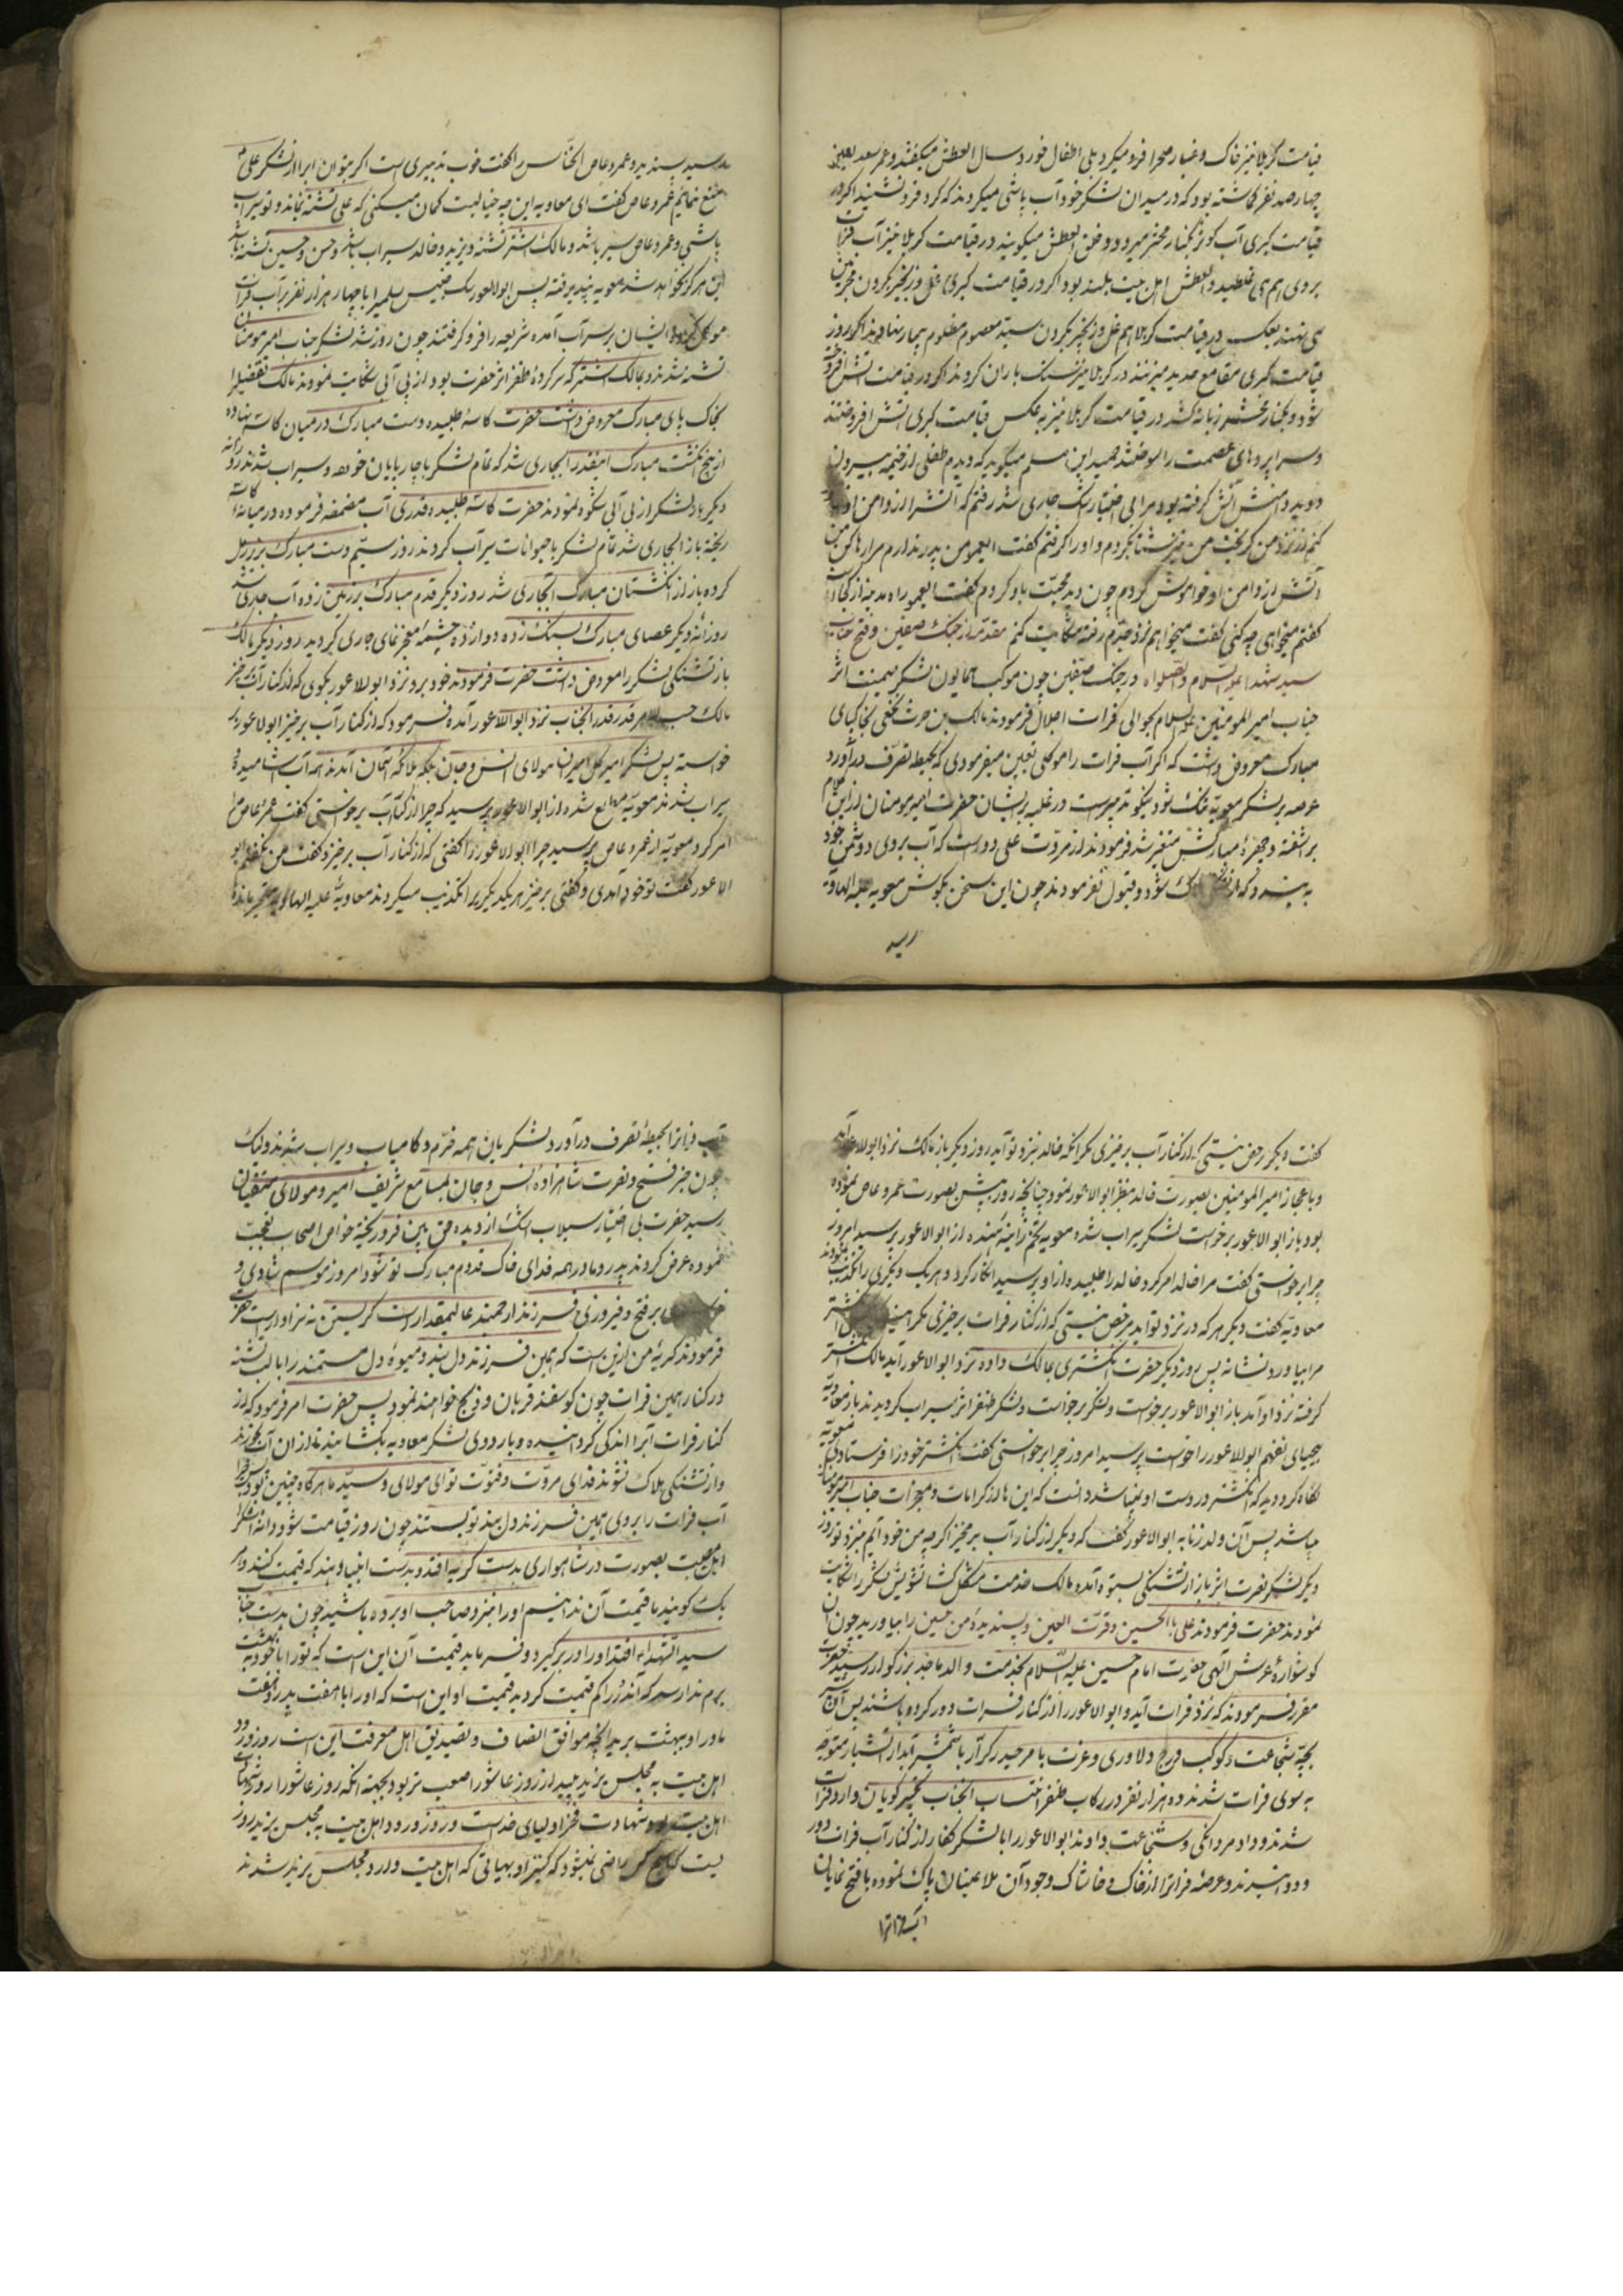 قیامت کربلا نیز خاک و غبار صحرا فرو میکرد بلی اطفال خورد سال العطش میکفتند و عمر سعد لعین
چهار صد نفر کماشته بود که در میدان لشکر خود آب پاشی میکردند که کرد فرو نشیند اکر در
قیامت کبری آب کوثر بکنار محشر میرود و خلق العطش میکویند در قیامت کربلا نیز آب فرات
بروی هم می غلطید و العطش اهل بیت بلند بود اکر در قیامت کبری غل و زنجیر بکردن مجرمین
می نهند بعکس در قیامت کربلا هم غل و زنجیر بکردن سید معصوم مظلوم بیمار نهادند اکر روز
قیامت کبری مقامع حدید میزنند در کربلا نیز سنک باران کردند اکر در قیامت آتش افروخته
شود و بکنار محشر زبانه کشد در قیامت کربلا نیز بعکس قیامت کبری آتش افروختند
و سرا پردهای عصمت را سوختند حمید ابن مسلم میکوید که دیدم طفلی از خیمه بیرون
دوید و دامنش آتش کرفته بود مرا بی اختیار اشک جاری شد رفتم که آتش را از دامن او
کنم از نزد من کریخت من نیز شتاب کردم و او را کرفتم کفت ایعمو من پدر ندارم مرا رها کن من
آتش از دامن او خواموش کردم چون دید محبت باو کردم کفت ایعمو راه مدینه از کجاست
کفتم میخواهی چه کنی کفت میخواهم نزد جدم رفته شکایت کنم مقدمه از جنک صفین و فتح جناب
سید شهدا علیه السلام و الصلواه در جنک صفین چون موکب همایون لشکر میمنت اثر
جناب امیر المومنین علیه السلام بحوالی فرات اجلال فرمودند مالک بن حرث نخعی بخاکپای
مبارک معروض داشت که اکر آب فرات را موکلی تعیین میفرمودی که بحیطه تصرف در آورد
عرصه بر لشکر معویه تنک شود نیکو تدبیریست در غلبه بر ایشان حضرت امیر مومنان از این کلام
بر آشفته و چهره مبارکش متغیر شد فرمودند از مروت علی دور است که آب بروی دشمن خود
به بندد که از تشنکی هلاک شود و قبول نفرمودند چون این سخن بکوش معویه علیه الهاویه
رسید
رسید پسندید و عمر و عاص الخناس را کفت خوب تدبیری است اکر بتوان آب را از لشکر علی
منع نمائیم عمرو عاص کفت ای معاویه این چه خیالیست کمان میکنی که علی تشنه بماند و تو سیراب
باشی و عمرو عاص سیر باشد و مالک اشتر تشنه و یزید و خالد سیراب باشد و حسن و حسین تشنه باشند
این هر کز نخواهد شد معویه نپذیرفته پس ابوالاعور یک چنیس سلمی را با چهار هزار نفر بر آب فرات
موکل کردند ایشان بر سر آب آمده شریعه را فرو کرفتند چون روز شد لشکر جناب امیر مومنان
تشنه شدند و بمالک اشتر که سر کرده ظفر اثر حضرت بود از بی آبی شکایت نمودند مالک تفصیل را
بخاک پای مبارک معروض داشت حضرت کاسه طلبیده دست مبارک در میان کاسه نهاده
از پنج انکشت مبارک اینقدر آب جاری شد که تمام لشکر با چارپایان خورده و سیراب شدند روزانه
دیکر باز لشکر از بی آبی شکوه نمودند حضرت کاسه طلبیده قدری آب مضمضه فرموده در میان کاسه
ریخته باز آب جاری شد تمام لشکر با حیوانات سیرآب کردند روز سیم دست مبارک بزیر بغل
کرده باز از انکشتان مبارک آب جاری شد روز دیکر قدم مبارک بر زمین زده آب جاری شد
روزانه دیکر عصای مبارک بسنک زده دوازده چشمه معجز نمای جاری کردید روز دیکر مالک
باز تشنکی لشکر را معروض داشت حضرت فرمودند خود برو نزد ابو لاعور بکوی که از کنار آب برخیز
مالک حسب الامر قدر قدر آنجناب نزد ابو اللاعور آمده فرمود که از کنار آب برخیز ابو لاعور بر
خواسته پس لشکر امیر کل امیران مولای انس و جان بلکه ملائکه آسمان آمدند همه آب آشامیده
سیراب شدند معویه مطلع شده از ابو الاعور پرسید که چرا از کنار آب برخواستی کفت عمرو عاص مرا
امر کرد معویه از عمرو عاص پرسید چرا ابو الاعور را کفتی که از کنار آب برخیزد کفت من نکفتم ابو
الاعور کفت تو خود آمدی و کفتی برخیز هر یک دیکری را تکذیب میکردند معاویه علیه الهاویه متحیر ماند
کفت دیکر رخص نیستی که از کنار آب برخیزی مکر آنکه خالد نیزد تو آید روز دیکر باز مالک نزد ابولاعور آمد
و باعجاز امیر المومنین بصورت خالد بنظر ابوالاعور نمود چنانچه روز پیش بصورت عمرو عاص نموده
بود باز ابو الاعور برخواست لشکر سیراب شده معویه تخم زانیه هنده از ابو الاعور پرسید امروز
چرا برخواستی کفت مرا خالد امر کرد خالد را طلبیده از او پرسید انکار کرد و هر یک دیکری را تکذیب نمودند
معاویه کفت دیکر هر که در نزد تو آید مرخص نیستی که از کنار فرات برخیزی مکر انکشتر
مرا بیاورد نشانه پس روز دیکر حضرت انکشتری بمالک داده نزد ابو الاعور آید مالک انکشتر
کرفته نزد او آمد باز ابو الاعور برخواست و لشکر برخواست و لشکر ظفر اثر سیراب کردیدند باز معاویه
بیحیای نفهم ابوالاعور را خواست پرسید امروز چرا برخواستی کفت انکشتر خود را فرستادی معویه
نکاه کرد دید که انکشتر در دست او نمیباشد دانست که این ها از کرامات و معجزات جناب امیر مومنان
میباشد پس آن ولد زنا به ابوالاعور کفت که دیکر از کنار آب برمخیز اکر چه من خود آیم نیزد تو روز
دیکر لشکر نصرت اثر باز از تشنکی بستوه آمده مالک خدمت مشکل کشا تشویش لشکر را شکایت
نمودند حضرت فرمودند علی باالحسین و قرت العین و پسندیده من حسین را بیاورید چون آن
کوشواره عرش الهی حضرت امام حسین علیه السلام بخدمت والد ماجد بزرکوار رسید حضرت
مقرر فرمودند که نزد فرات آید و ابو الاعور را از کنار فرات دور کرده باشند پس آن
بچه شجاعت و کوکب درج دلاوری و عزت با مر حیدر کرار با شمشیر آبدار آتشبار متوجه
به سوی فرات شدند و ده هزار نفر در رکاب ظفر انتساب آنجناب تکبیر کویان وارد فرات
شدند و داد مردانکی و شجاعت دادند ابو الاعور را با لشکر کفار از کنار آب فرات دور
و دوانیدند و عرصه فرات را از خاک و خاشاک وجود آن ملاعینان پاک نموده با فتح نمایان
آب فراترا
آب فراترا بحیطه تصرف در آورد لشکریان همه خرم و کامیاب و سیراب شدند و لیک
چون خبر فتح و نصرت شاهزاده انس و جان بمسامع شریف امیر و مولای متقیان
رسید حضرت بی اختیار سیلاب اشک از دیده حق بین فرو ریخته خواص اصحاب تعجب
نموده عرض کردند پدر و مادر همه فدای خاک قدوم مبارک تو شود امروز موسم شادی و
بر فتح و فیروزی فرزند ارجمند عالیمقدار است کریستن نه سزاوار است حضرت
فرمودند کریه من ازین است که همین فرزند دل بند و میوه دل مستمند را با لب تشنه
در کنار همین فرات چون کوسفند قربان و ذبح خواهند نمود پس حضرت امر فرمود که از
کنار فرات آبرا اندکی کردانیده و بار دوی لشکر معاویه بکشانیند تا از ان آب بخورند
و از تشنکی هلاک نشوند فدای مروت و فتوت تو ای مولای و سید ما هرکاه چنین بود چرا
آب فرات را بروی همین فرزند دل بند تو بستند چون روز قیامت شود دانه اشک
اهل مصیبت بصورت در شاهواری بدست کریه افتد و بدست انبیا دهند که قیمت کنند هر
یک کویند ما قیمت آن ندانیم او را بنزد صاحب او برده باشید چون بدست جناب
سید الشهداء افتد او را در بر کیرد و فرماید قیمت آن این است که تو را با خود به بهشت
برم ندا رسد که آندُر را کم قیمت کردید قیمت او این است که او را با هفت پدر و هفت
مادر او بهشت برید آنچه موافق انصاف و تصدیق اهل معرفت این است روز ورود
اهل بیت به مجلس یزید پلید از روز عاشورا صعب تر بود بجهة آنکه روز عاشورا روز شهادت
اهل بیت بود و شهادت فخر اولیای خداست و روز ورود اهل بیت به مجلس یزید روز
راضی نمیشود که کنیز او بهیاتی که اهل بیت وارد مجلس یزید شدند